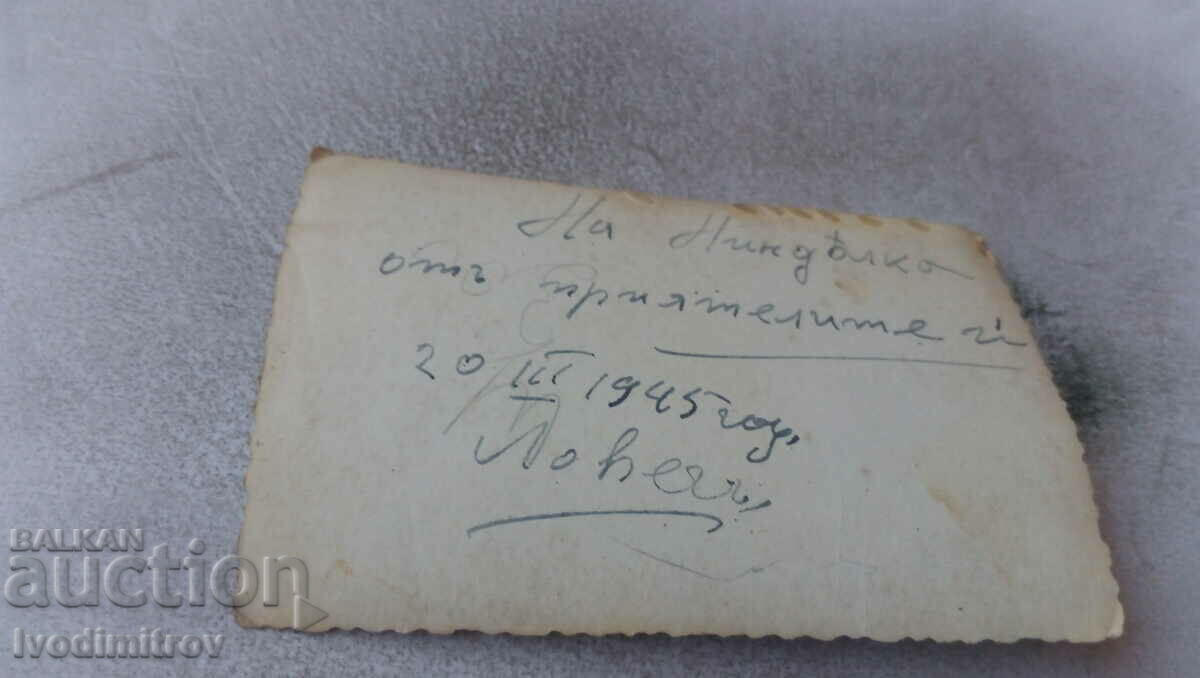 На Ниндѣлка
отъ приятелите ѝ
20 III 1945 год.
Ловечъ,
BALKAN
auction
Ivodimitrov